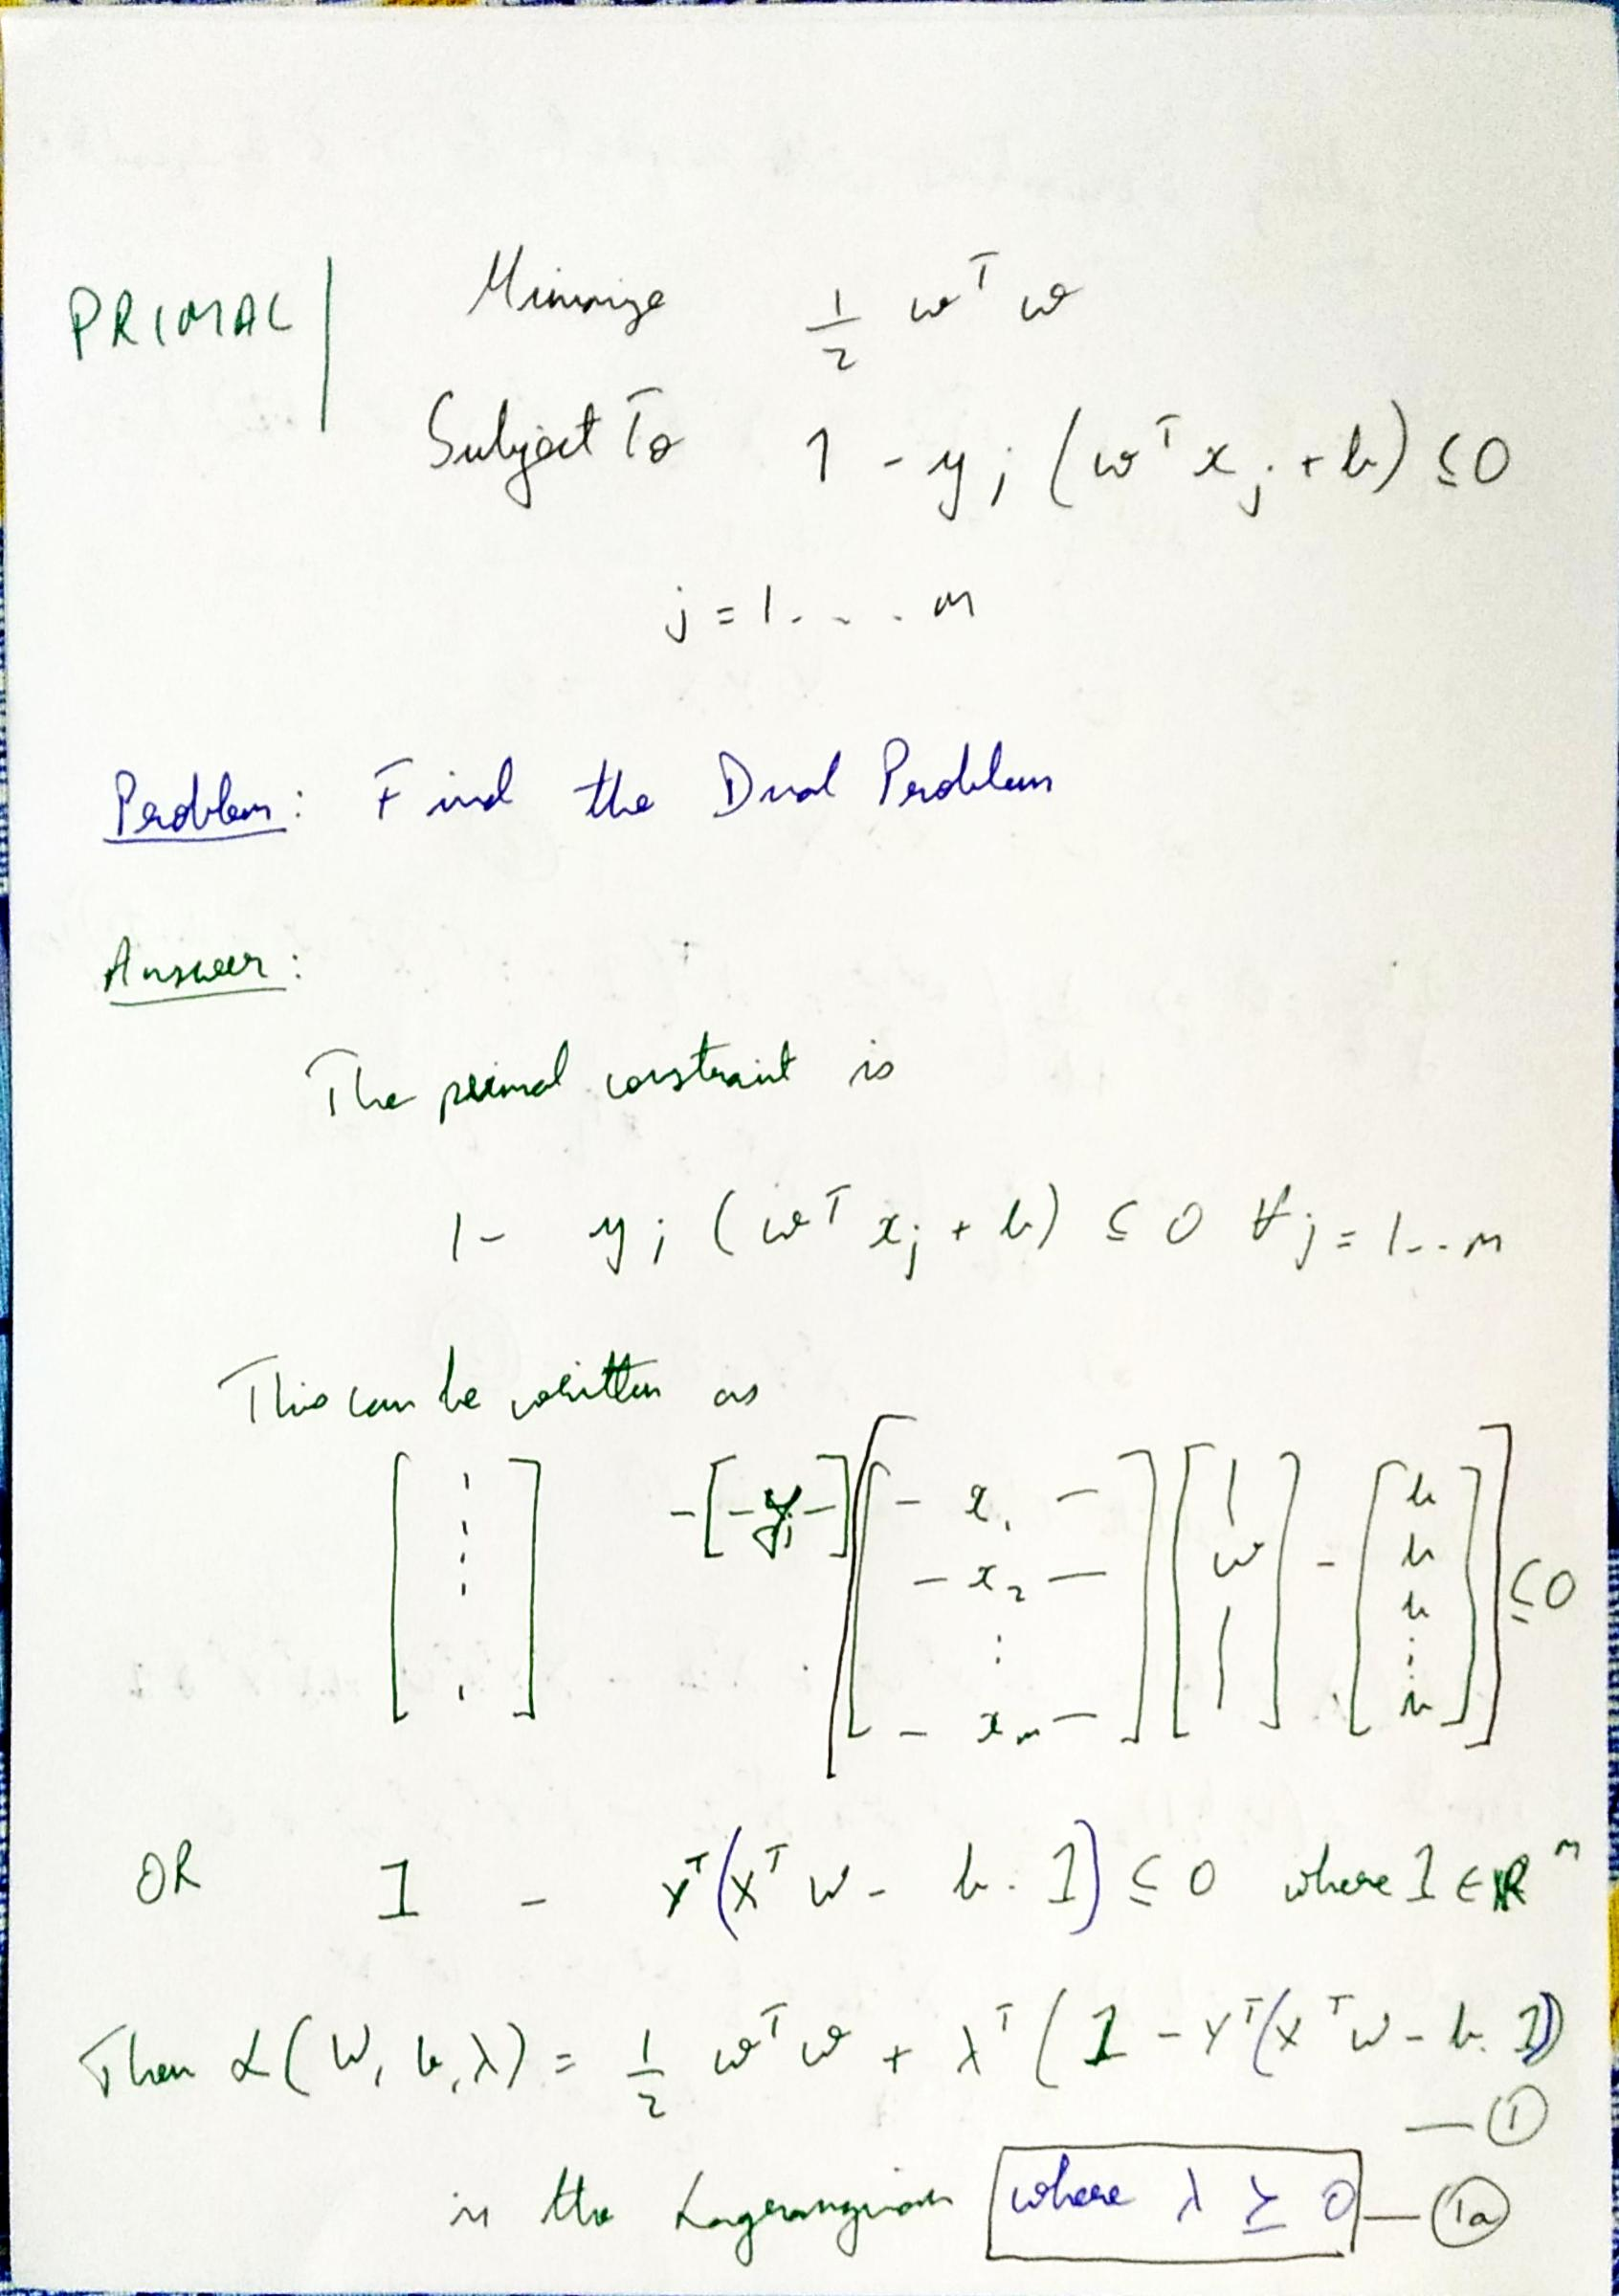 PRIMAL | Minimize 1/2 w^T w
Subject To 1 - y_j (w^T x_j + b) ≤ 0
j = 1 . . . . m
Problem: Find the Dual Problem
Answer:
The primal constraint is
1 - y_j (w^T x_j + b) ≤ 0 ∀ j = 1 . . m
This can be written as
[ 1 1 1 1 . ] - [ - y_j - ] [ [ - x_1 - - x_2 - ⋮ - x_m - ] [ | w | ] - [ b b b ⋮ b ] ] ≤ 0
OR 1 - Y^T (X^T w - b . 1) ≤ 0 where 1 ∈ ℝ^m
Then L(w, b, λ) = 1/2 w^T w + λ^T (1 - Y^T (X^T w - b . 1))
— (1)
is the Lagrangian where λ ≥ 0 — (1a)